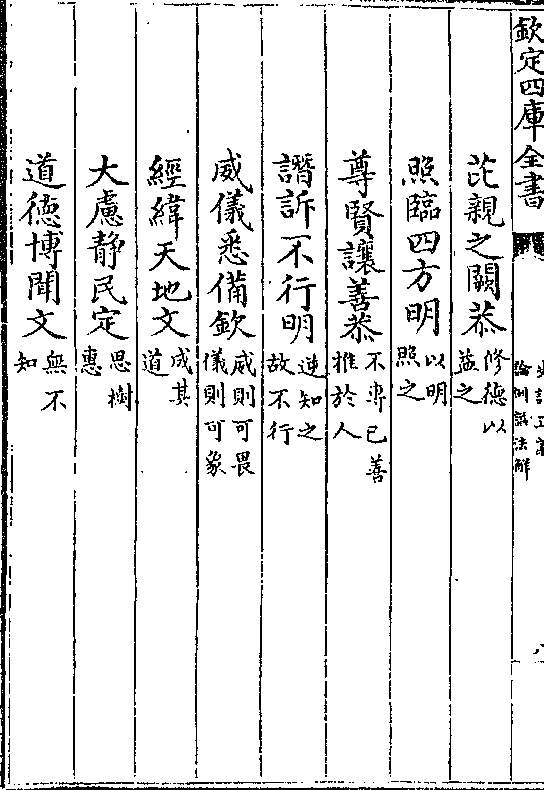 欽定四庫全書
論例諡法解
芘親之闕恭 修德以益之
照臨四方明 以明照之
尊賢讓善恭 不專己善推於人
譖訴不行明 逆知之故不行
威儀悉備欽 威則可畏儀則可象
經緯天地文 成其道
大慮静民定 思樹惠
道德博聞文 無不知